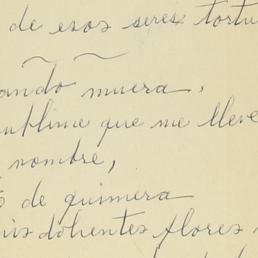 de esos seres tortu
ando muera,
ublime que me lleve
nombre,
de quimera
mis dolientes flores